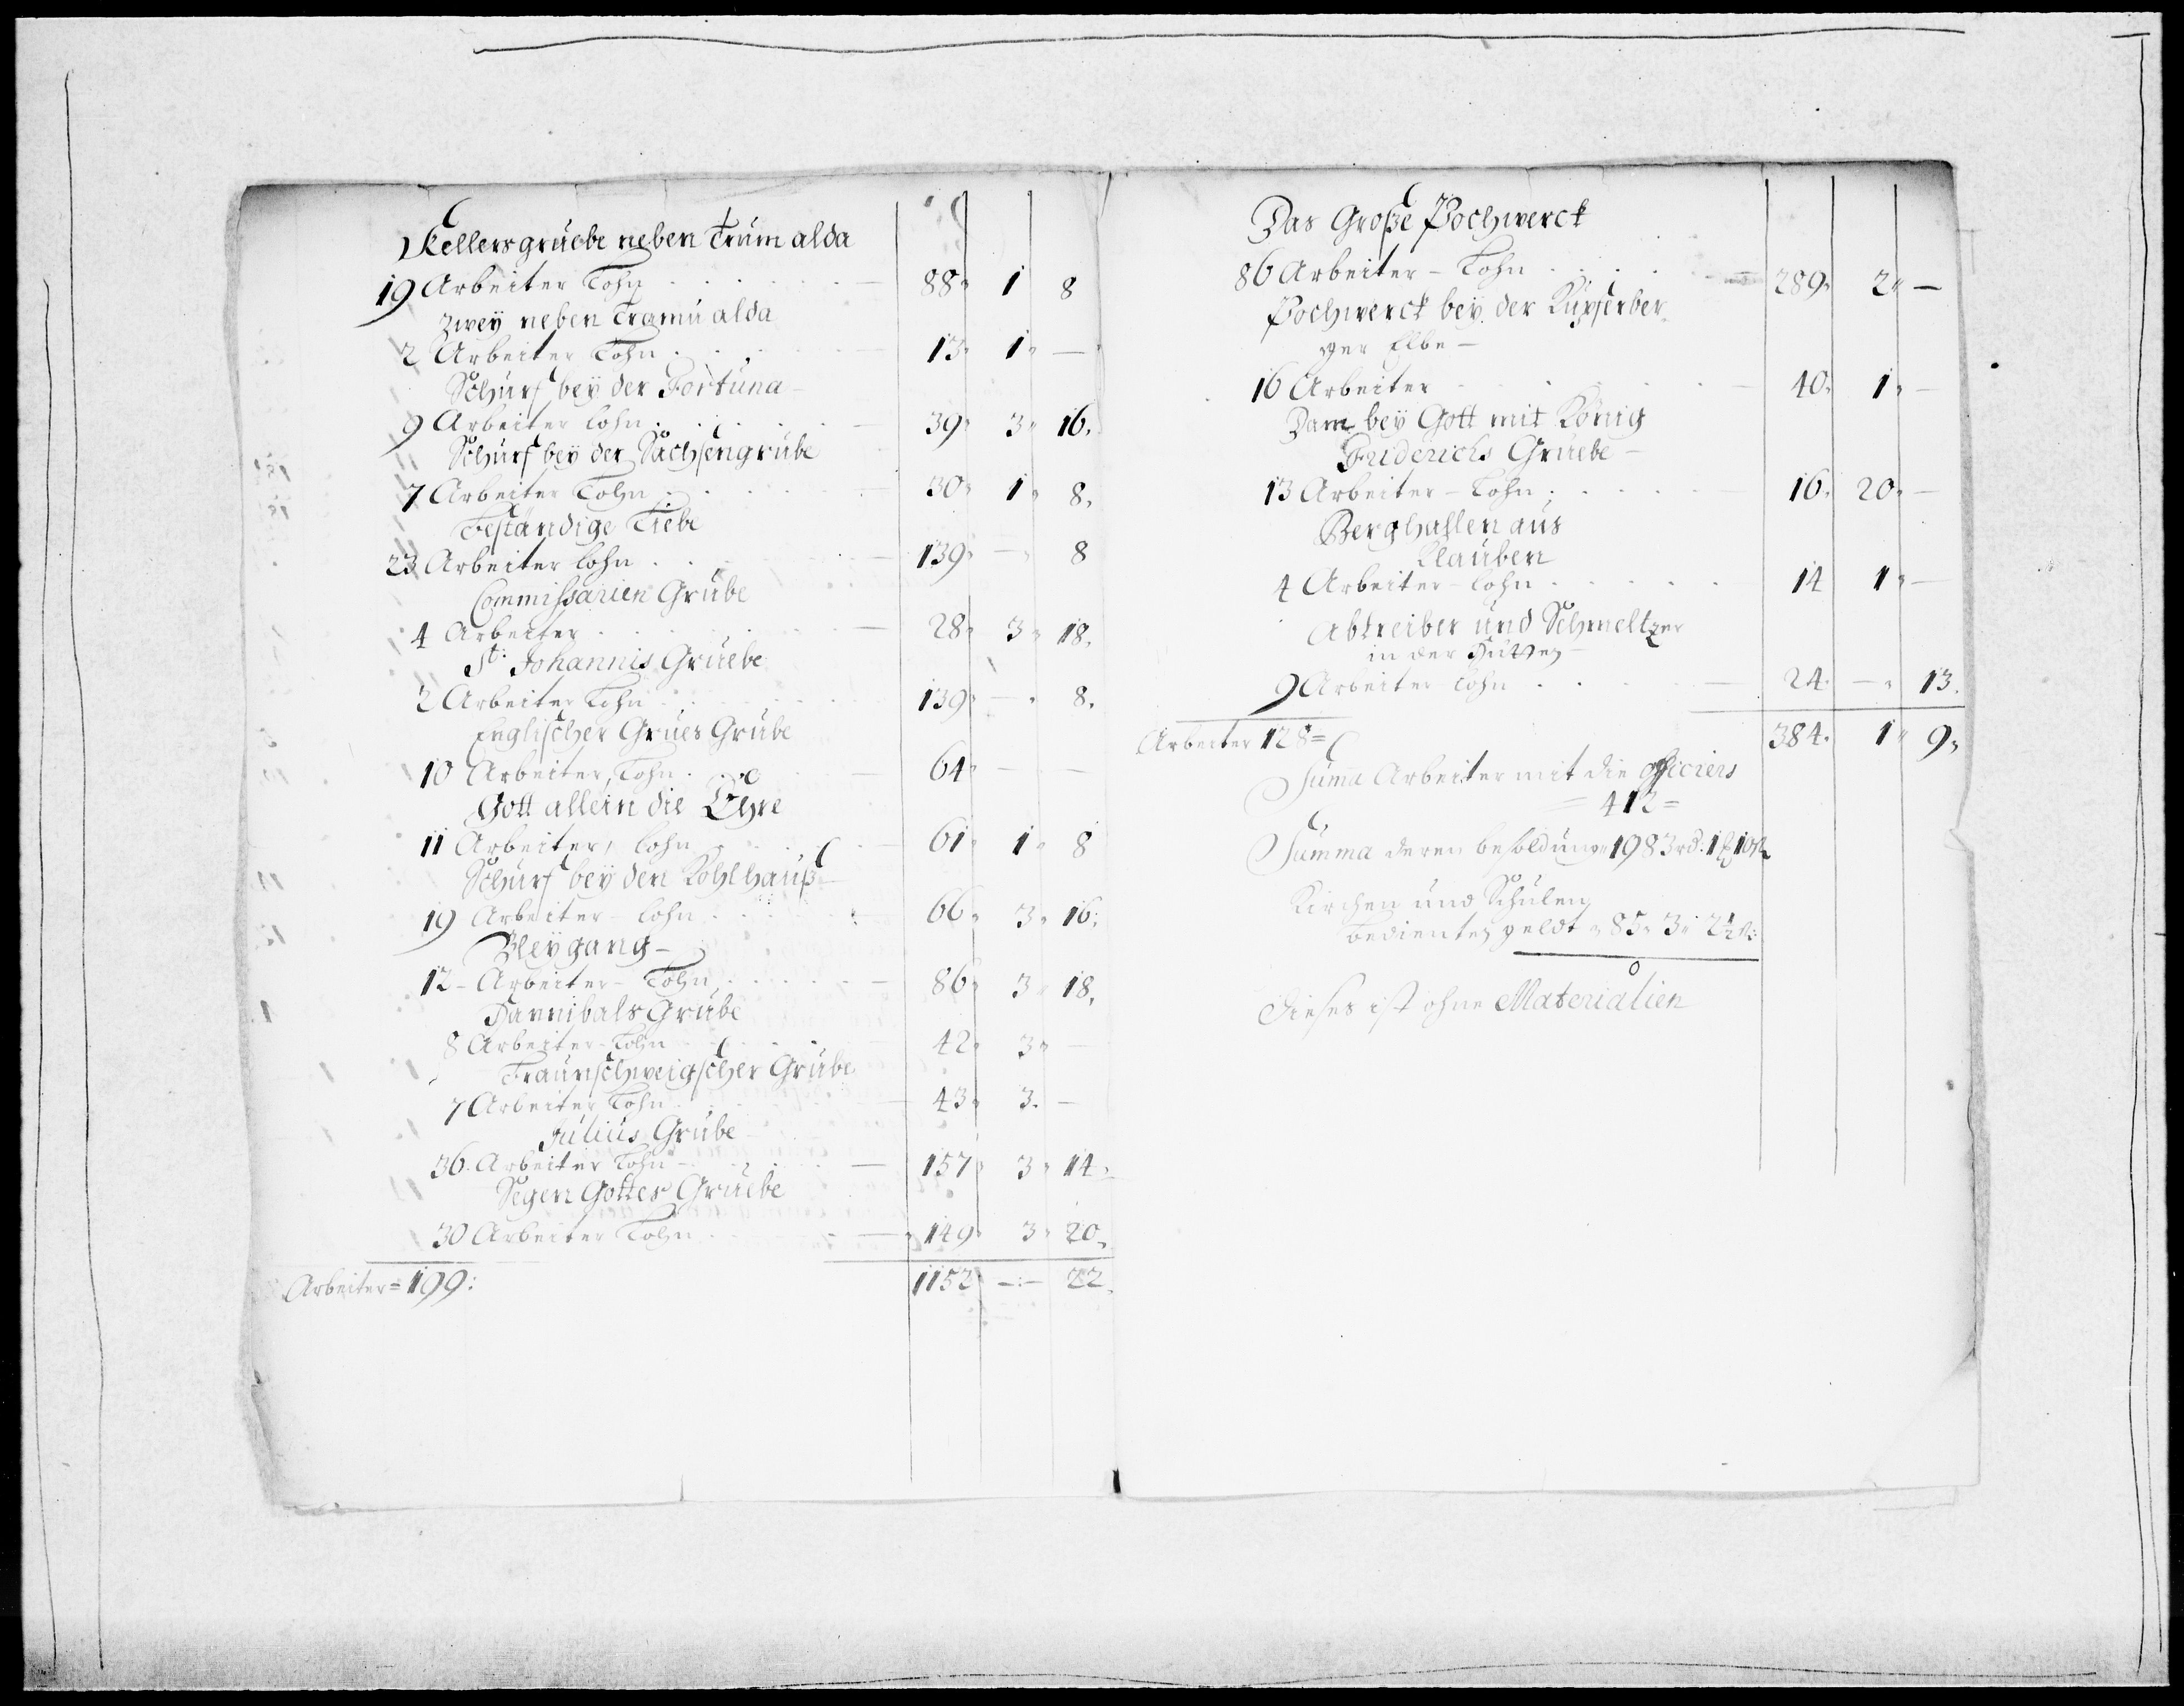 Kellersgruebe neben Trumalda
19 Arbeiter Lohn . . . . . — 88 " 1 8
Zweÿ neben Tramualda
2 Arbeiter Lohn . . . . — 13 " 1 " —
Schurf beÿ der Fortuna —
9 Arbeiter Lohn . . . . — 39 " 3 " 16.
Schürf beÿ der Sachsengrube
7 Arbeiter Lohn . . . . — 30 " 1 " 8.
Beständige Liebe
23 Arbeiter Lohn . . . — 139 " — " 8
Commissarien Grube
4 Arbeiter . . . . . — 28 " 3 " 18.
St: Johannis Gruebe
2 Arbeiter Lohn . . . . 139 " — " 8.
Englischer Grues Grube
10 Arbeiter, Lohn . . . — 64 " — —
Gott allein die Ehre
11 Arbeiter, Lohn . . . — 61 " 1 " 8
Schurf beÿ den Kohlhauß —
19 Arbeiter - Lohn . . . . 66 " 3 " 16:
Bleÿgang —
12 - Arbeiter - Lohn . . . . — 86 " 3 " 18.
Hannibals Grube
8 Arbeiter - Lohn . . . . 42 " 3 " —
Braunschweigscher Grube
7 Arbeiter Lohn . . . . — 43 " 3. —
Julius Grube —
36. Arbeiter Lohn . . . . — 157 " 3 " 14.
Segen Gottes Gruebe
30 Arbeiter Lohn . . . . — 149 " 3 " 20.
Arbeiter = 199: 1152 — : — 22.
Das Große Pochwerck
86 Arbeiter - Lohn . . . . 289 " 2 " —
Pochwerck beÿ der Kupferber
ger Elbe —
16 Arbeiter . . . . . — 40 " 1 " —
Dam beÿ Gott mit König
Friderichs Gruebe —
13 Arbeiter - Lohn . . . . — 16 " 20 " —
Berghallen aus
Klauben
4 Arbeiter - Lohn . . . . . 14 1 " —
Abtreiber und Schmeltzer
in der Hütten —
9 Arbeiter Lohn . . . . — 24. — " 13.
Arbeiter 128 = 384. 1 " 9 "
Suma Arbeiter mit die officiers
= 412 =
Summa deren besoldung 1983 rd: 1 10
Kirchen und Schulen
bedienten geldt " 85 " 3 " 2½ ß:
Dieses ist ohne Materialien